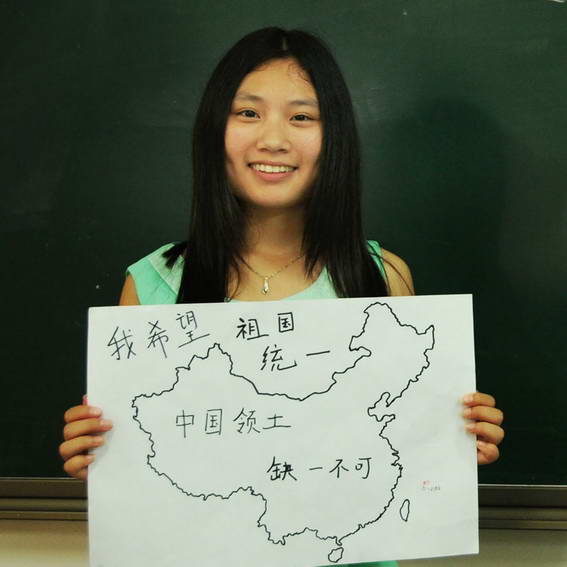 我希望 祖国
统一
中国领土
缺一不可